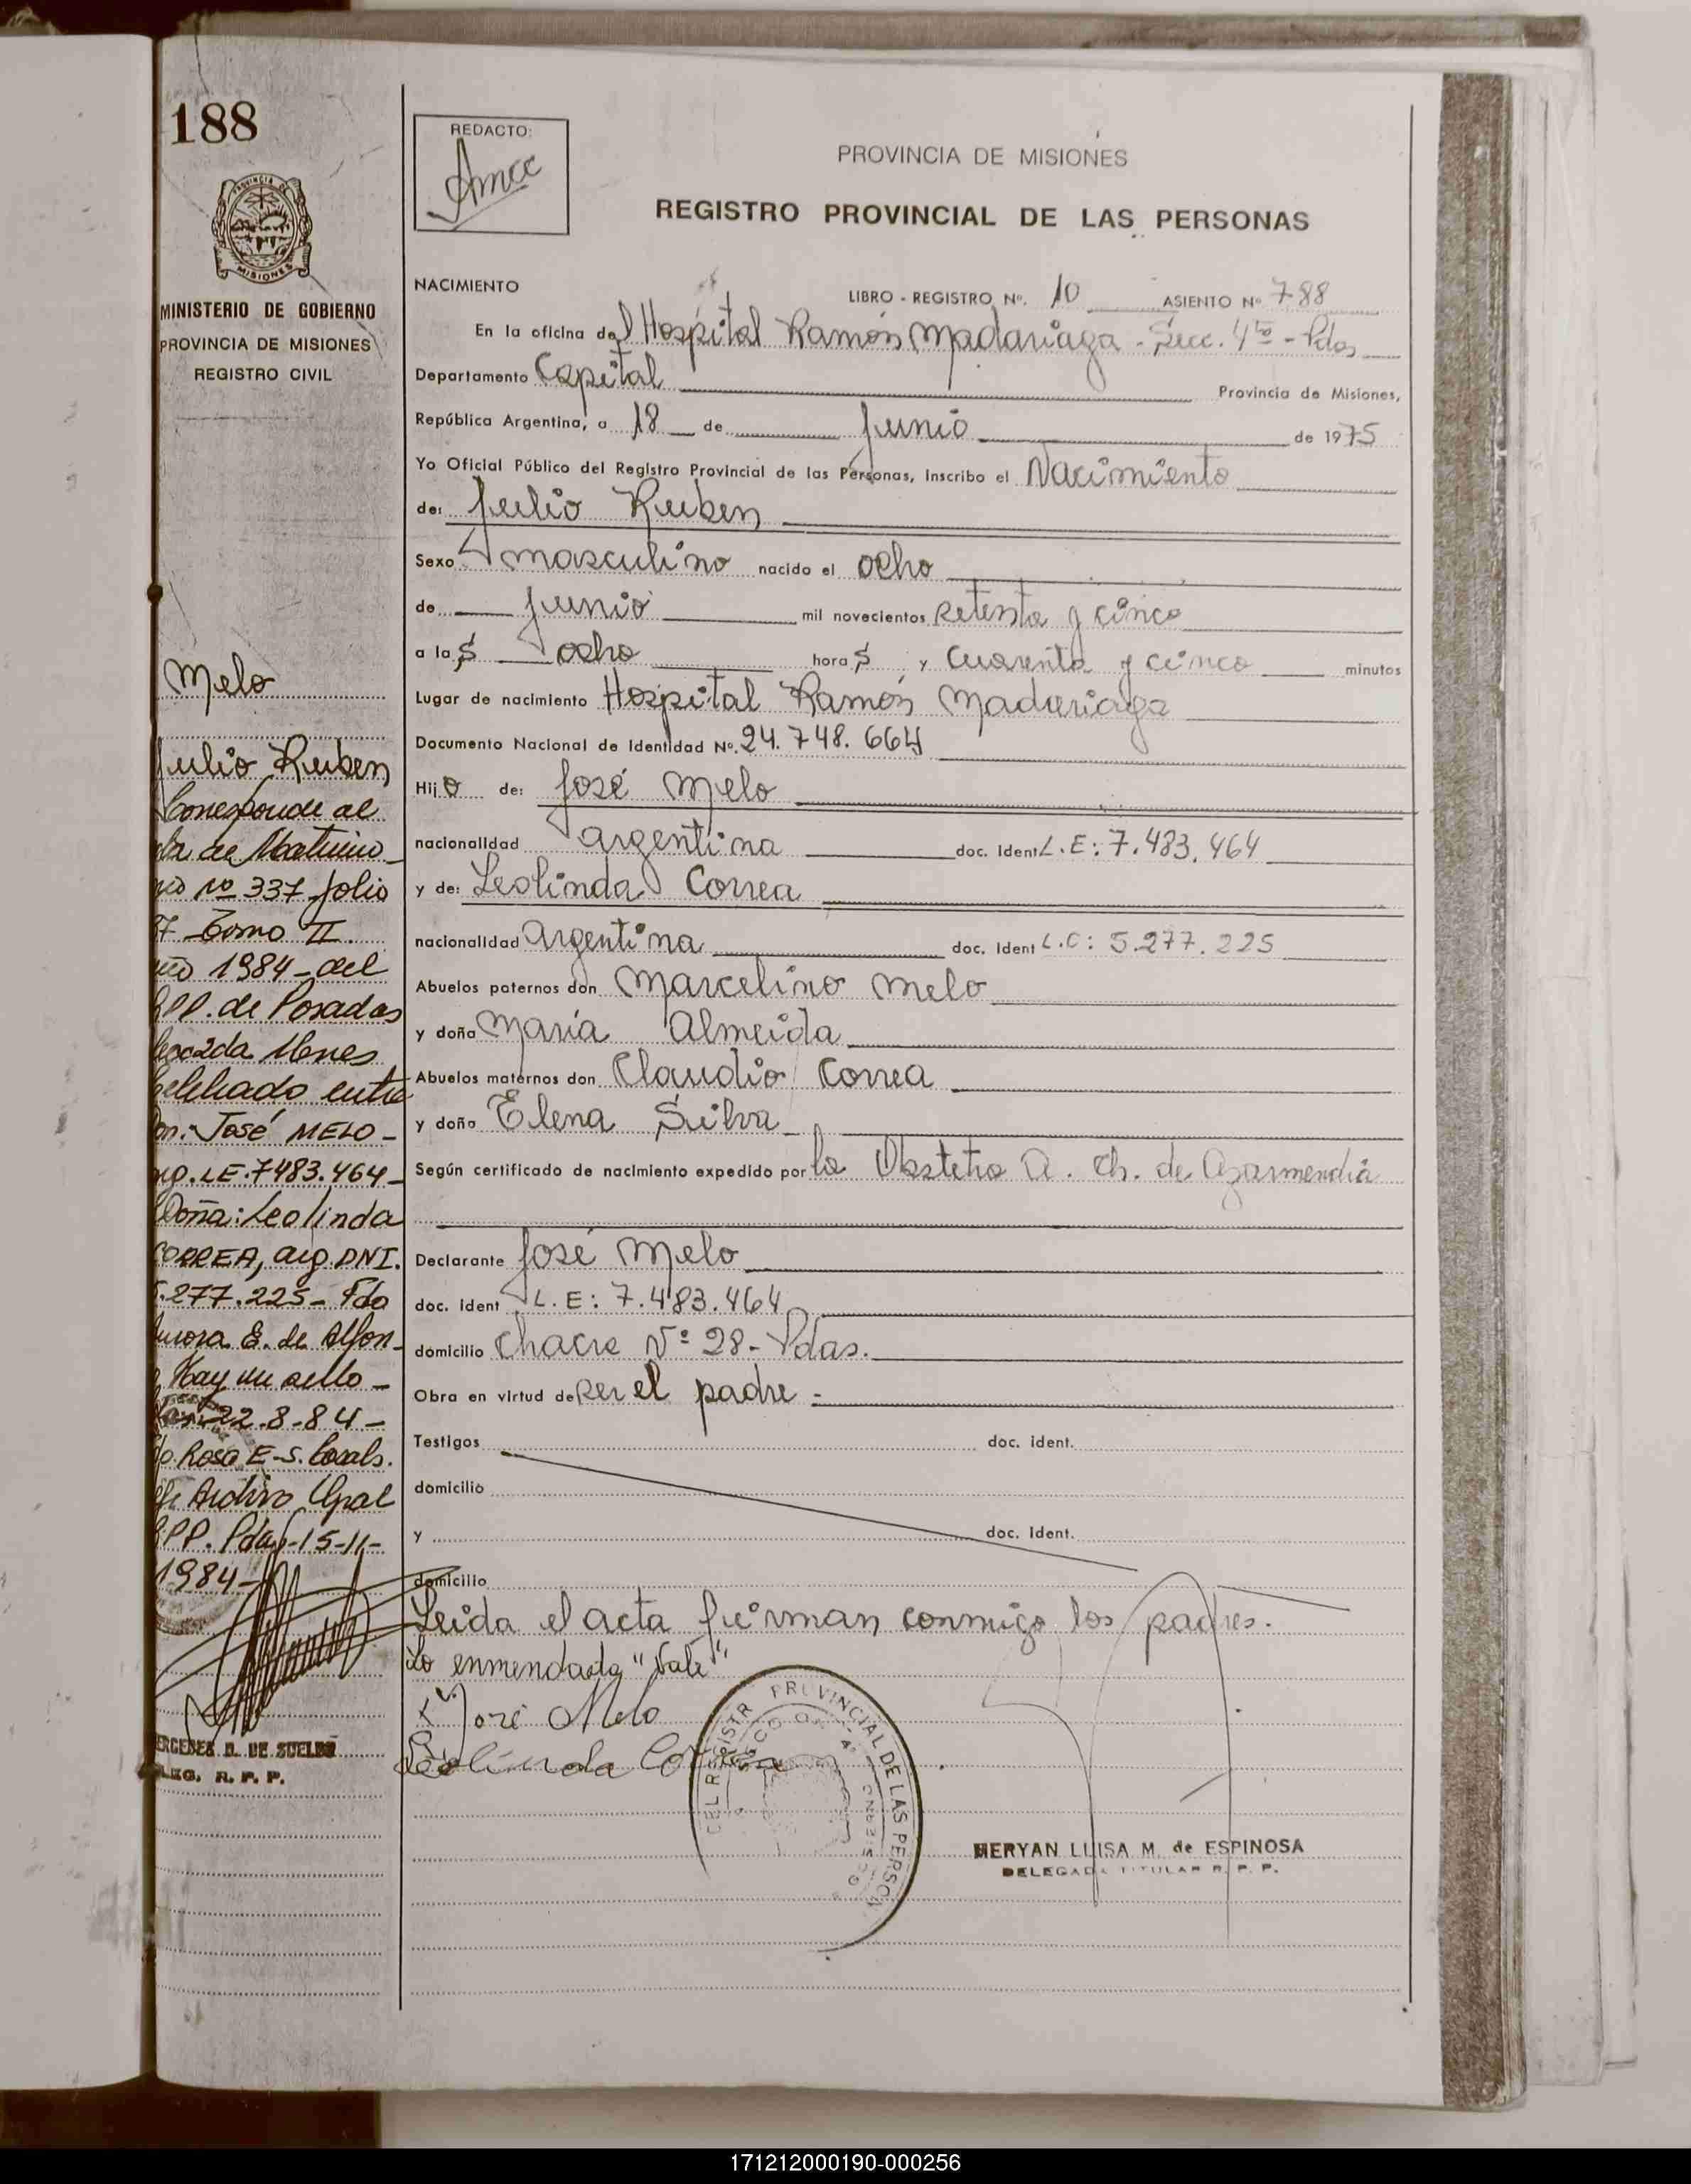 188
MINISTERIO DE GOBIERNO
PROVINCIA DE MISIONES
REGISTRO CIVIL
Melo
Julio Ruben
Corresponde al
de Matrimo
nio no 337 folio
7 Tomo II
1984 - del
de Posadas
Mnes
entre
José MELO -
LE. 7483.464 -
Doña: Leolinda
CORREA, arg. DNI.
.277.225 - Fdo
E. de Alfon-
Hay un sello -
22-8-84 -
Rosa E - S.
Archivo Gral
. Pdas - 15-11-
1984 -
D. DE SUELDO
R. P. P.
REDACTO:
PROVINCIA DE MISIONES
REGISTRO PROVINCIAL DE LAS PERSONAS
NACIMIENTO LIBRO - REGISTRO Nº. 10 ASIENTO Nº 788
En la oficina del Hospital Ramón Madariaga - Secc. 4ta - Pdas
Departamento Capital Provincia de Misiones,
República Argentina, a 18 de Junio de 1975
Yo Oficial Público del Registro Provincial de las Personas, Inscribo el Nacimiento
de: Julio Ruben
Sexo masculino nacido el ocho
de Junio mil novecientos setenta y cinco
a las ocho horas y cuarenta y cinco minutos
Lugar de nacimiento Hospital Ramón Madariaga
Documento Nacional de Identidad Nº. 24.748.664
Hijo de: José Melo
nacionalidad argentina doc. Ident L.E: 7.483.464
y de: Leolinda Correa
nacionalidad Argentina doc. Ident L.C: 5.277.225
Abuelos paternos don Marcelino Melo
y doña María Almeida
Abuelos maternos don Claudio Correa
y doña Elena Silva
Según certificado de nacimiento expedido por la Obstetra A. Ch. de Garmendia
Declarante José Melo
doc. ident L.E: 7.483.464
domicilio chacra Nº 28 - Pdas.
Obra en virtud de ser el padre -
Testigos doc. ident.
domicilio
y doc. Ident.
domicilio
Leida el acta firman conmigo los padres.
Lo enmendado "Vale"
José Melo
Leolinda Correa
PROVINCIAL DE LAS PERSON
LUISA M. de ESPINOSA
DELEGADA TITULAR R. P. P.
171212000190-000256